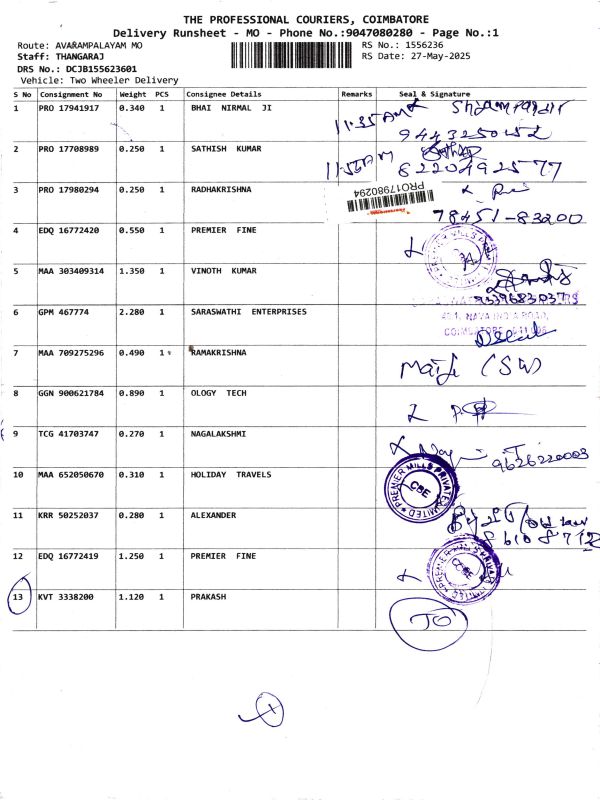 THE PROFESSIONAL COURIERS, COIMBATORE
Delivery Runsheet - MO - Phone No.:9047080280 - Page No.:1
Route: AVARAMPALAYAM MO RS No.: 1556236
Staff: THANGARAJ RS Date: 27-May-2025
DRS No.: DCJB155623601
Vehicle: Two Wheeler Delivery
S No Consignment No Weight PCS Consignee Details Remarks Seal & Signature
1 PRO 17941917 0.340 1 BHAI NIRMAL JI 11:35 AM
9443250152
2 PRO 17708989 0.250 1 SATHISH KUMAR 11:50 AM
6220492577
3 PRO 17980294 0.250 1 RADHAKRISHNA PRO17980294
78451-83200
4 EDQ 16772420 0.550 1 PREMIER FINE
5 MAA 303409314 1.350 1 VINOTH KUMAR
6 GPM 467774 2.280 1 SARASWATHI ENTERPRISES
7 MAA 709275296 0.490 1 RAMAKRISHNA (SW)
8 GGN 900621784 0.890 1 OLOGY TECH
9 TCG 41703747 0.270 1 NAGALAKSHMI
9626220003
10 MAA 652050670 0.310 1 HOLIDAY TRAVELS PREMIER MILLS PRIVATE LIMITED CBE
11 KRR 50252037 0.280 1 ALEXANDER
12 EDQ 16772419 1.250 1 PREMIER FINE PREMIER MILLS PRIVATE LIMITED CBE
13 KVT 3338200 1.120 1 PRAKASH TO